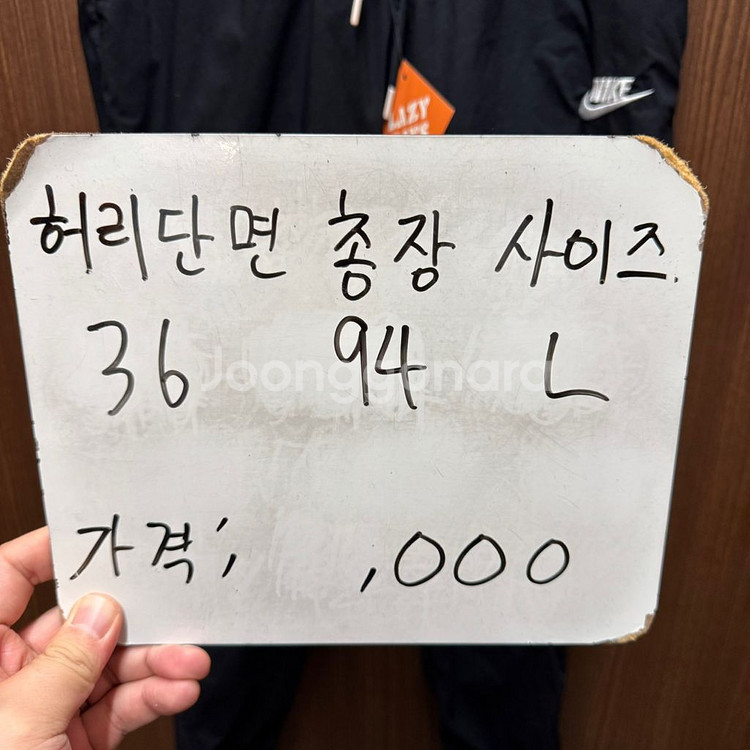 NIKE
LAZY
허리단면 총장 사이즈
36 94 L
Joonggonara
가격; ,000